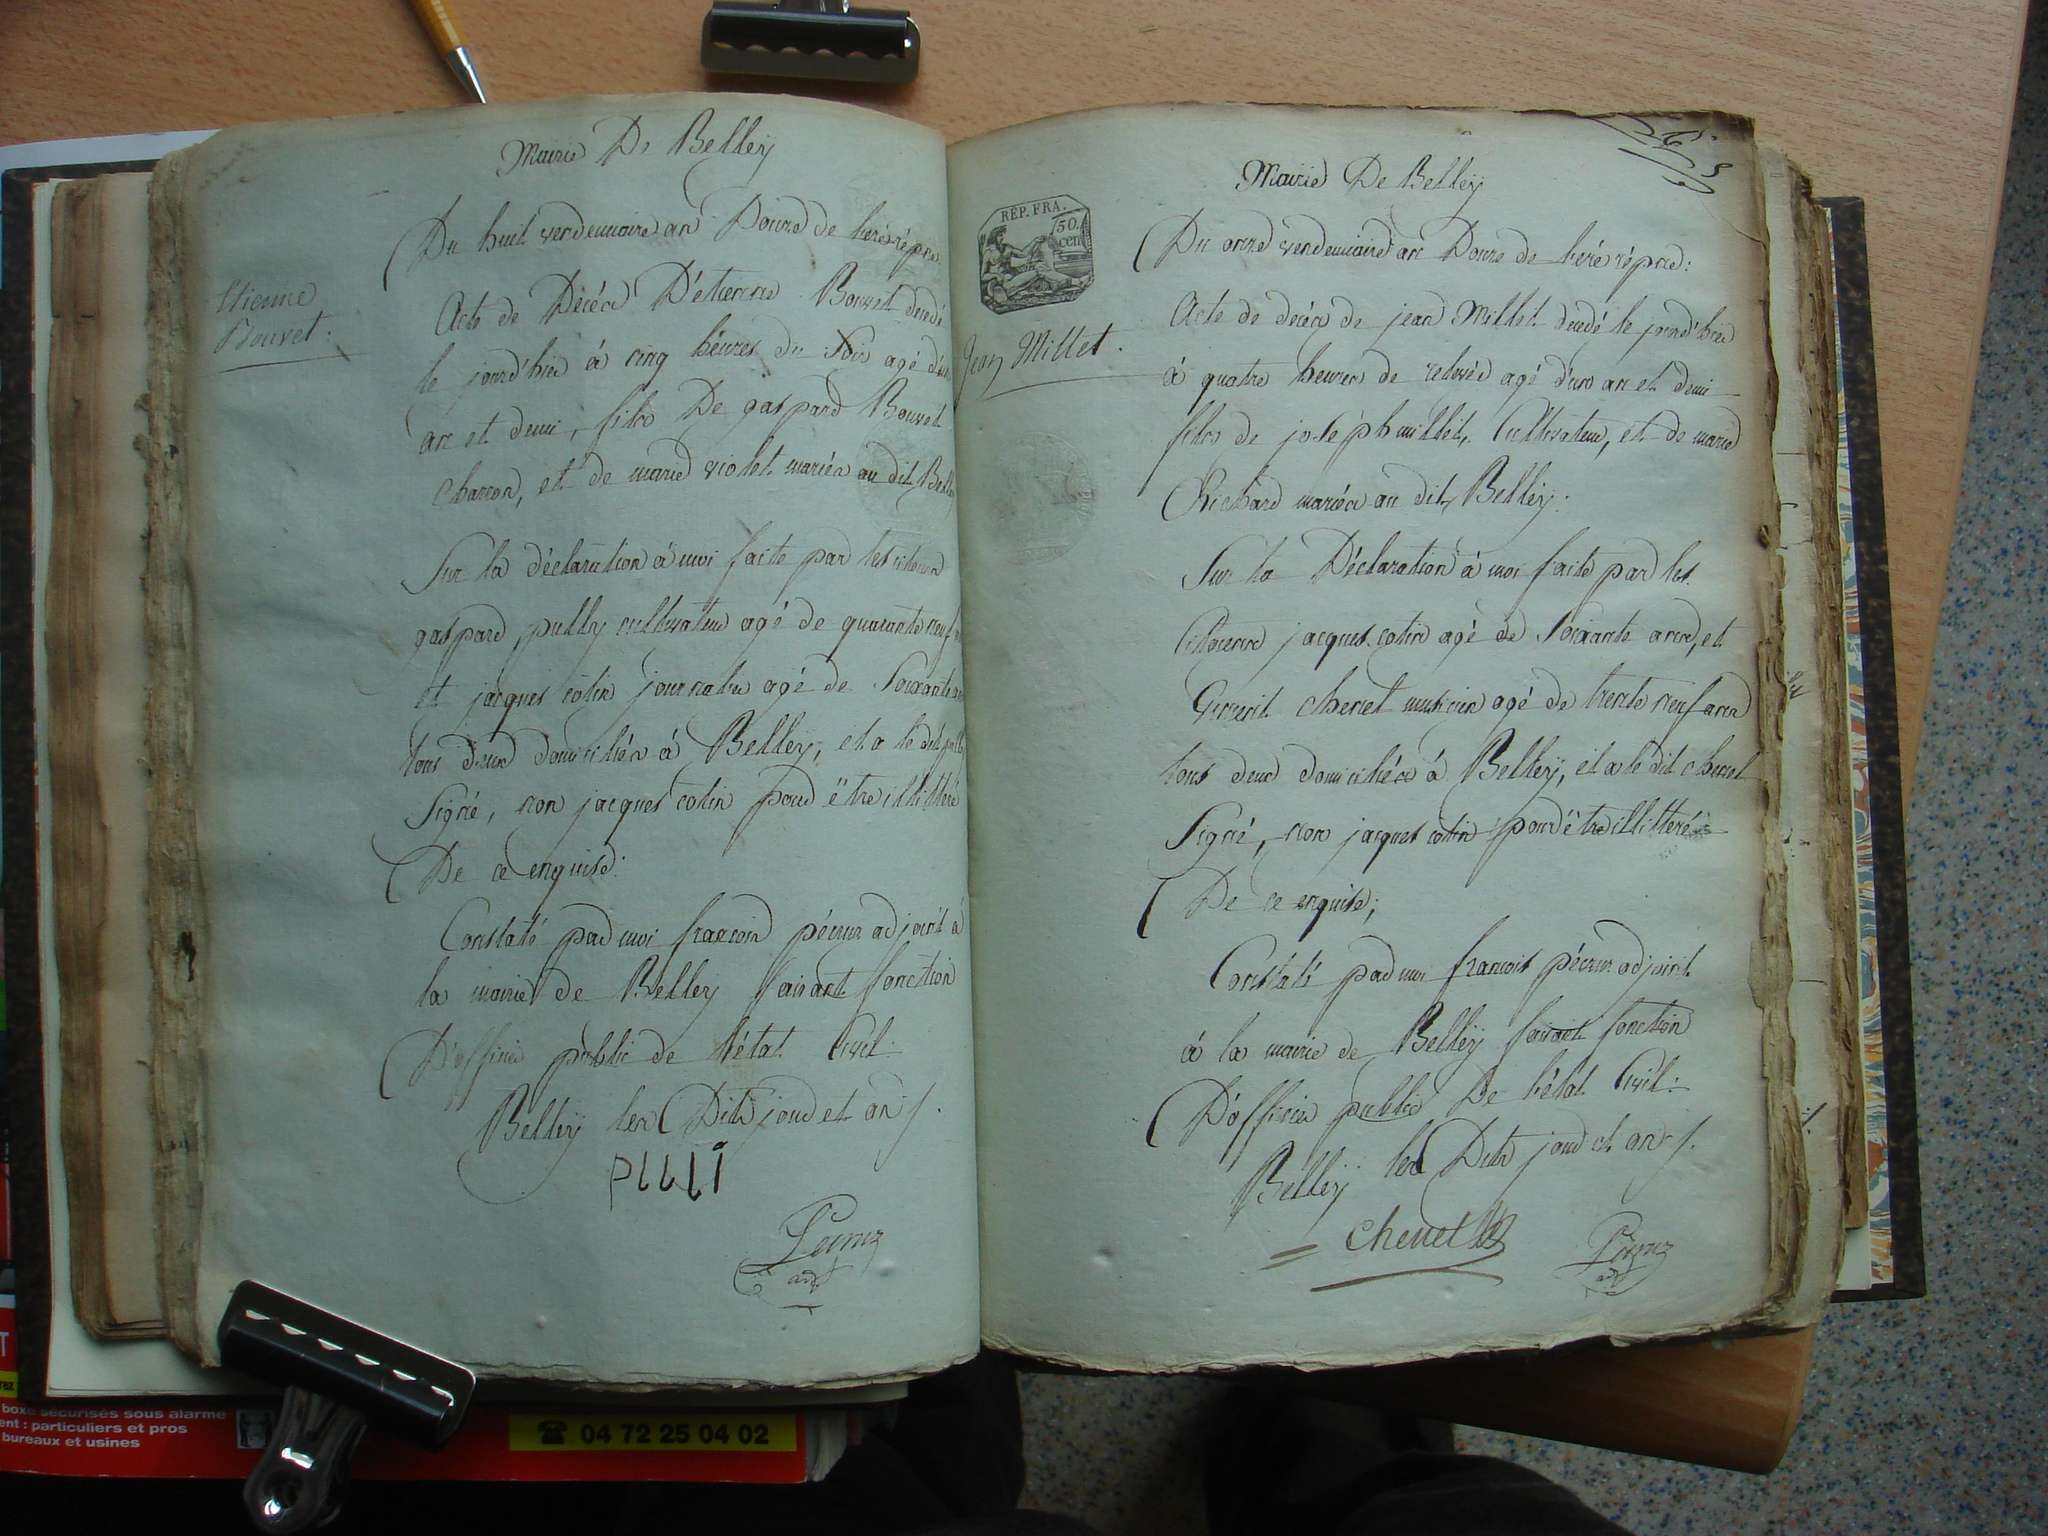 Mairie De Belley
Du huit vendemiaire an Douze de l'ere répne
Etienne
Bouvet.
Acte de Décéa D'etienne Bouvet decedé
le jourd'hier à cinq héures du soir agé d'un
an et demi, fils De gaspard Bouvet
charon, et de marie violet mariéa au dit Belley
Sur la déclaration à moi faite par les citoiens
gaspard pully cultivateur agé de quarante neuf
et jacques cotin journalier agé de soixante
tous deux domiciliéa à Belley, et a le dit pully
Signé, non jacques cotin pour être illittéré
De ce enquise:
Constaté par moi françois pécruz adjoint à
la mairie de Belley faisant fonction
D'officier public de l'état Civil.
Belley les Dits jour et an /.
PULLI
Pécruz
adjt
REP. FRA.
50.
cen
Mairie De Belleÿ
Du onze vendemiaire an Douze de l'ere répne:
Jean Millet.
Acte de décéa de jean Millet decedé le jourd'hier
à quatre heures de relevée agé d'un an et demi
fils de joséph millet, Cultivateur, et de marie
Richard mariéa au dit Belleÿ.
Sur la Déclaration à moi faite par les
Citoiens jacques cotin agé de soixante ans, et
chenet musicien agé de trente neuf ans
tous deux domiciliéa à Belleÿ, et a le dit chenet
Signé, non jacques cotin pour être illittéré
De ce enquise;
Constaté par moi françois pécruz adjoint
à la mairie de Belleÿ faisant fonction
D'officier public De l'état Civil.
Belleÿ les Dits jour et an /.
Chenet
Pécruz
adjt
boxe sécurisés sous alarme
ent : particuliers et pros
bureaux et usines
04 72 25 04 02